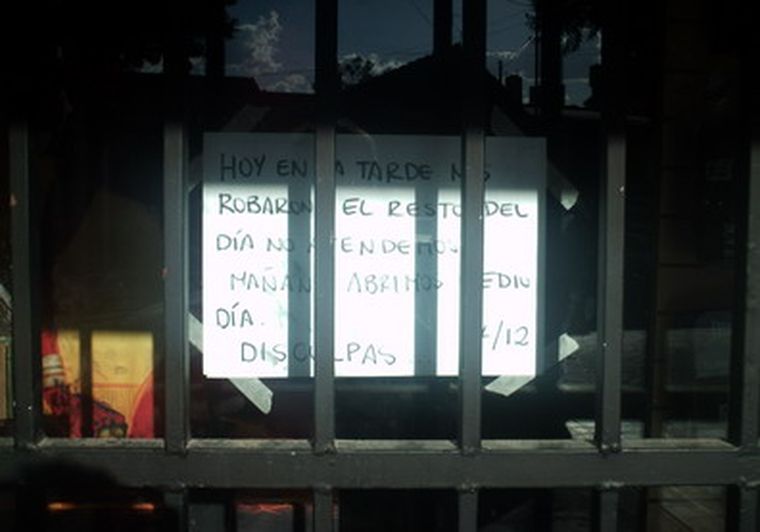 HOY EN LA TARDE NOS
ROBARON EL RESTO DEL
DÍA NO ATENDEMOS
MAÑANA ABRIMOS MEDIO
DÍA.
/12
DISCULPAS